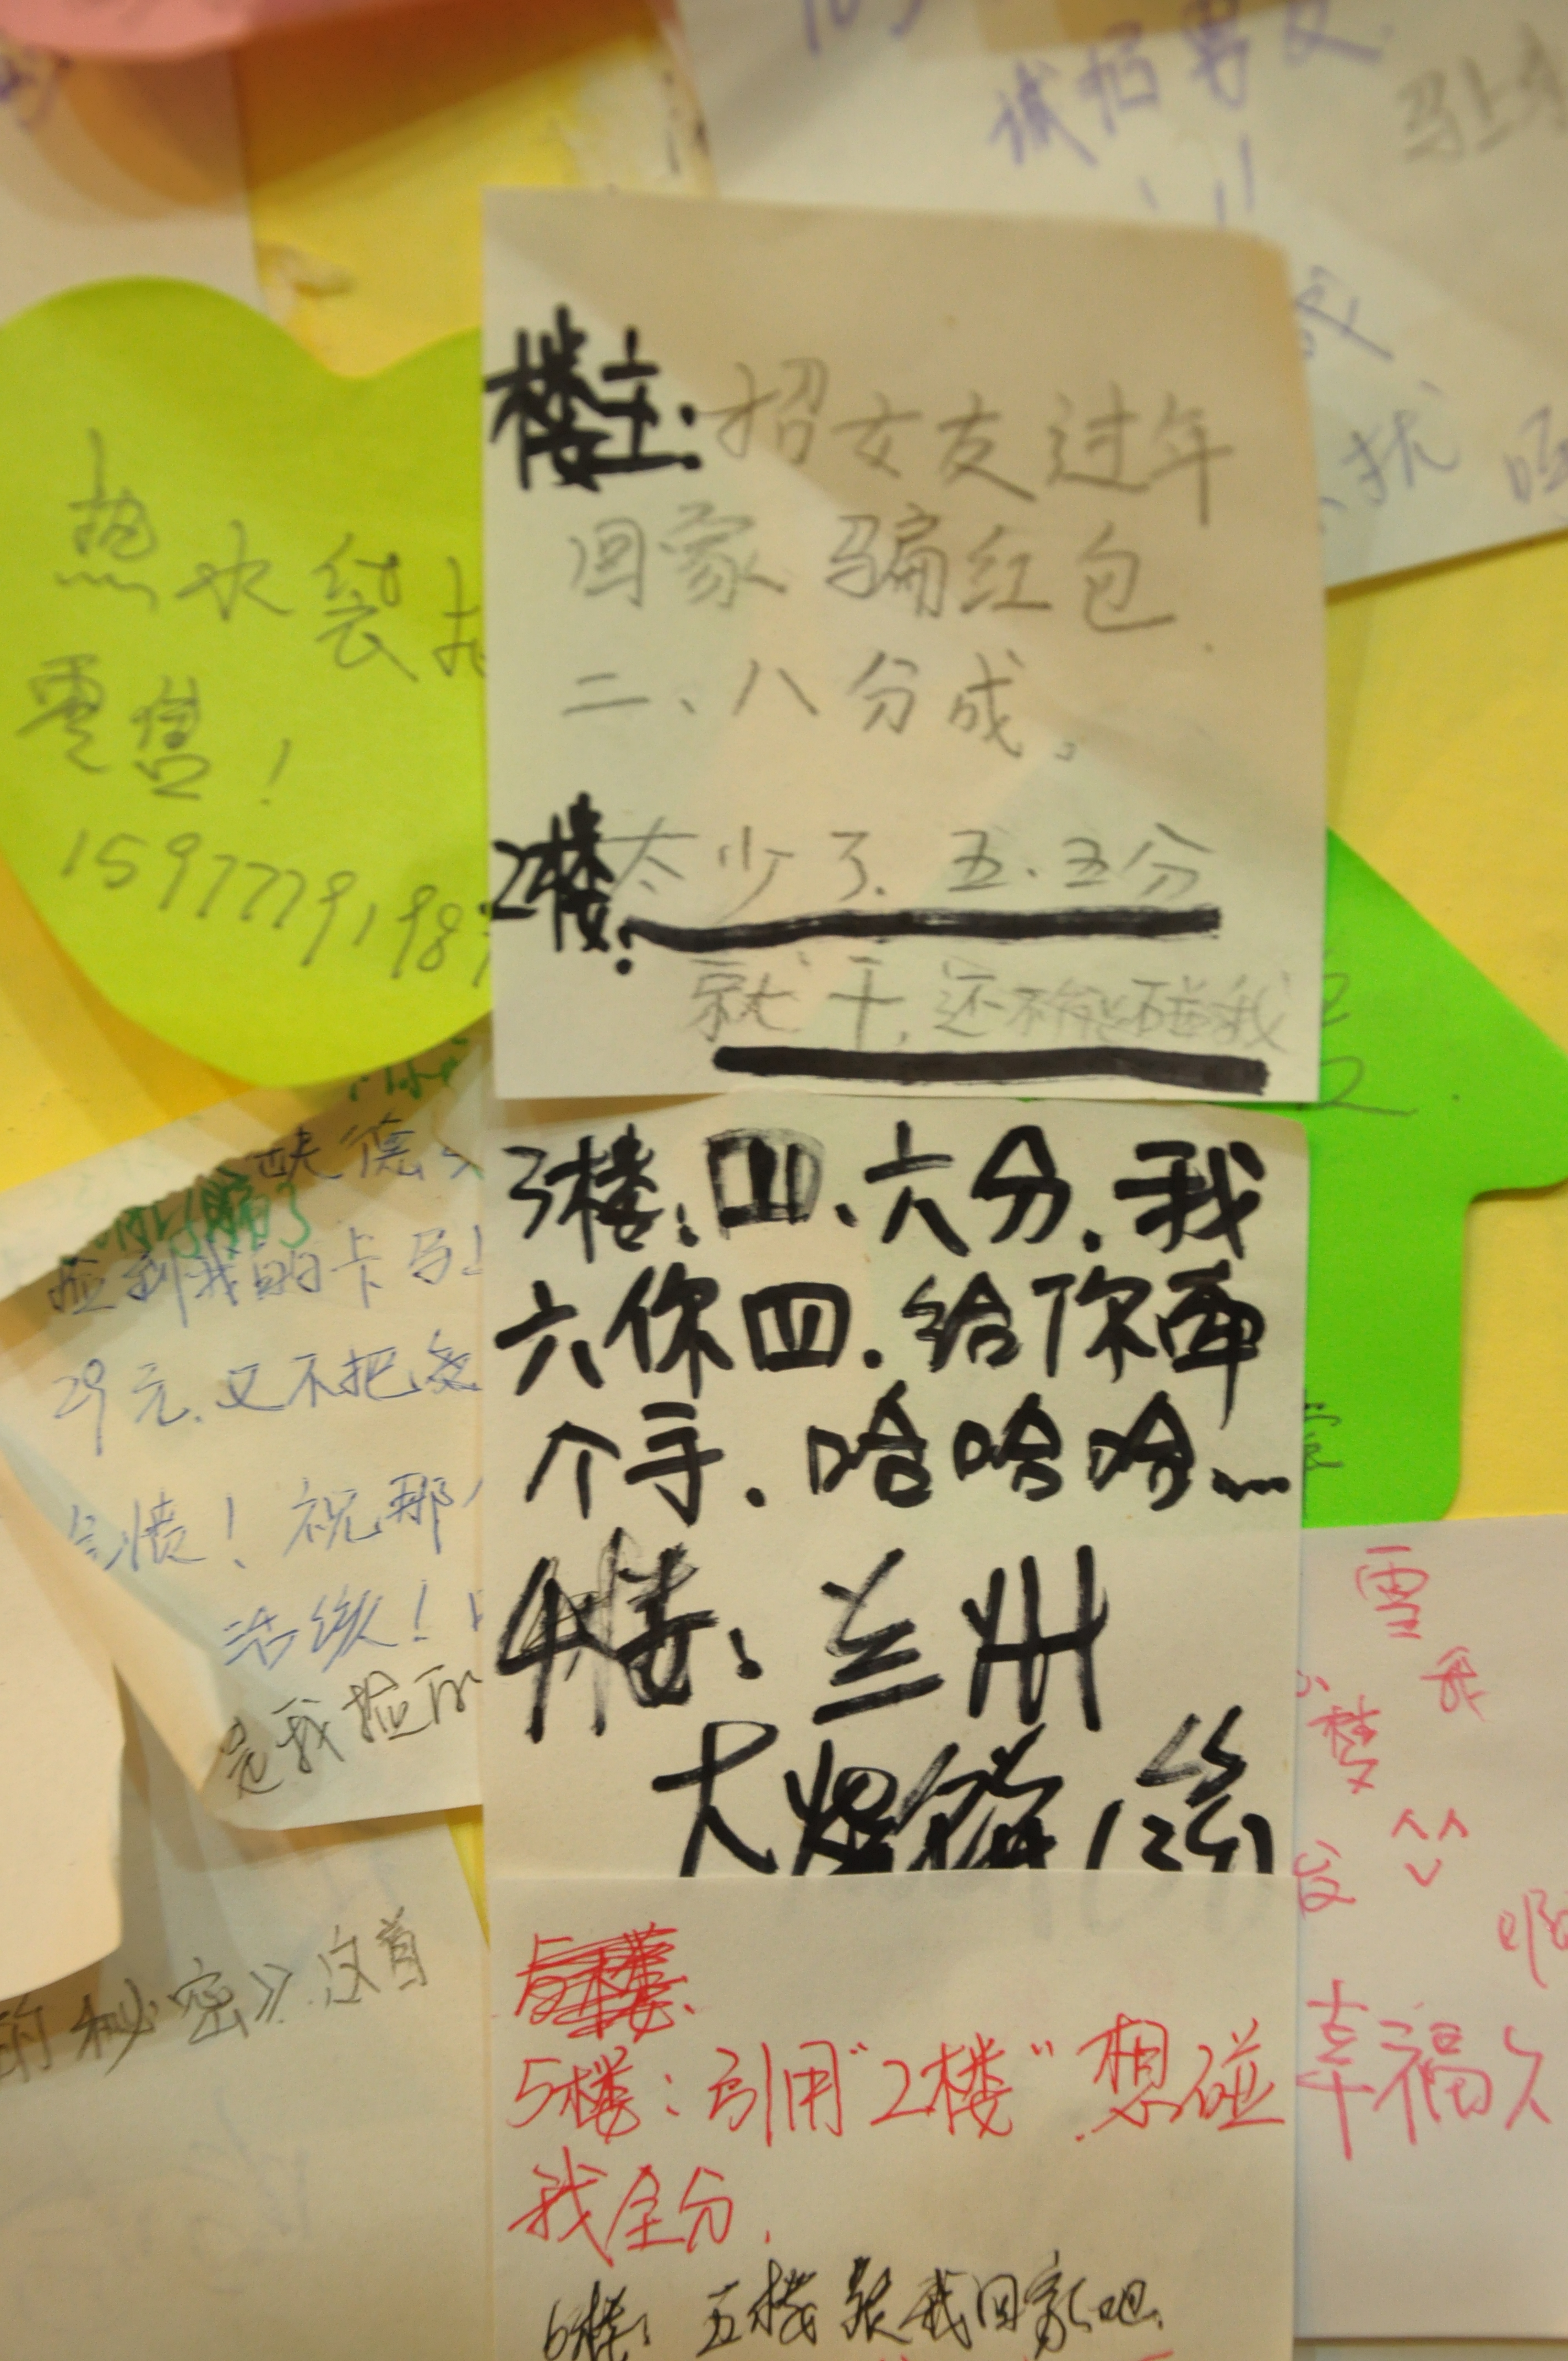 诚招男友
马上
扰
楼主:招女友过年
回家骗红包.
二、八分成。
2楼:太少了.五.五分
就干,还不能碰我
3楼:四、六分.我
六你四.给你牵
个手.哈哈哈...
4楼:兰州
大烟
5楼:引用"2楼"想碰
我全分.
6楼:五楼跟我回家吧.
热水袋批
零售!
1597779198
缺德
捡到我的卡
29元.又不把
愤!祝那
是我捡
的秘密》这首
雪
楼
啊
幸福久